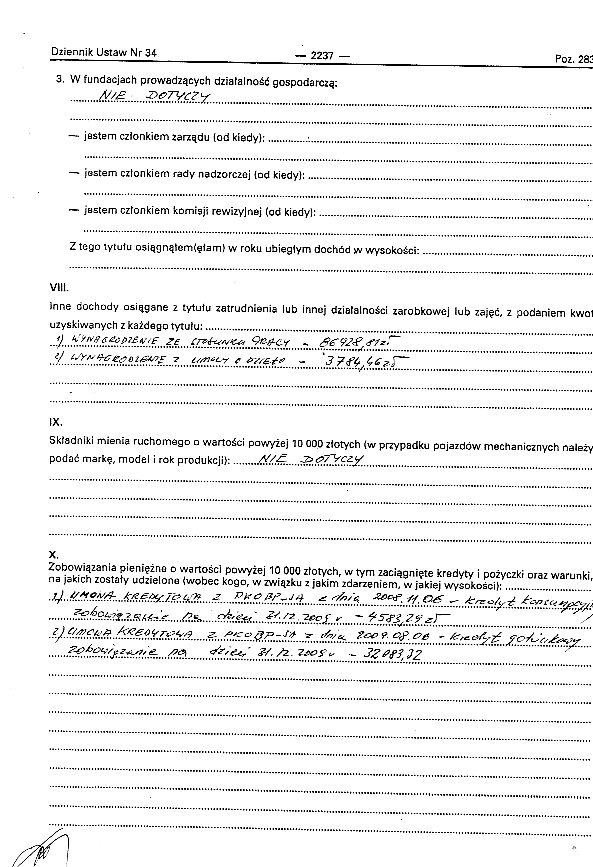 Dziennik Ustaw Nr 34 — 2237 — Poz. 283
3. W fundacjach prowadzących działalność gospodarczą:
NIE DOTYCZY
— jestem członkiem zarządu (od kiedy):
— jestem członkiem rady nadzorczej (od kiedy):
— jestem członkiem komisji rewizyjnej (od kiedy):
Z tego tytułu osiągnąłem(ęłam) w roku ubiegłym dochód w wysokości:
VIII.
Inne dochody osiągane z tytułu zatrudnienia lub innej działalności zarobkowej lub zajęć, z podaniem kwot
uzyskiwanych z każdego tytułu:
1) WYNAGRODZENIE ZE STOSUNKU PRACY - 86928,81 zł
2) WYNAGRODZENIE Z UMOWY O DZIEŁO - 3784,46 zł
IX.
Składniki mienia ruchomego o wartości powyżej 10 000 złotych (w przypadku pojazdów mechanicznych należy
podać markę, model i rok produkcji): NIE DOTYCZY
X.
Zobowiązania pieniężne o wartości powyżej 10 000 złotych, w tym zaciągnięte kredyty i pożyczki oraz warunki,
na jakich zostały udzielone (wobec kogo, w związku z jakim zdarzeniem, w jakiej wysokości):
1) UMOWA KREDYTOWA Z PKOBP-SA z dnia 2008.11.06 - kredyt konsumpcyjny
zobowiązanie na dzień 31.12.2009 r - 4583,29 zł
2) UMOWA KREDYTOWA Z PKOBP-SA z dnia 2009.08.06 - kredyt gotówkowy
zobowiązanie na dzień 31.12.2009 r - 32083,32